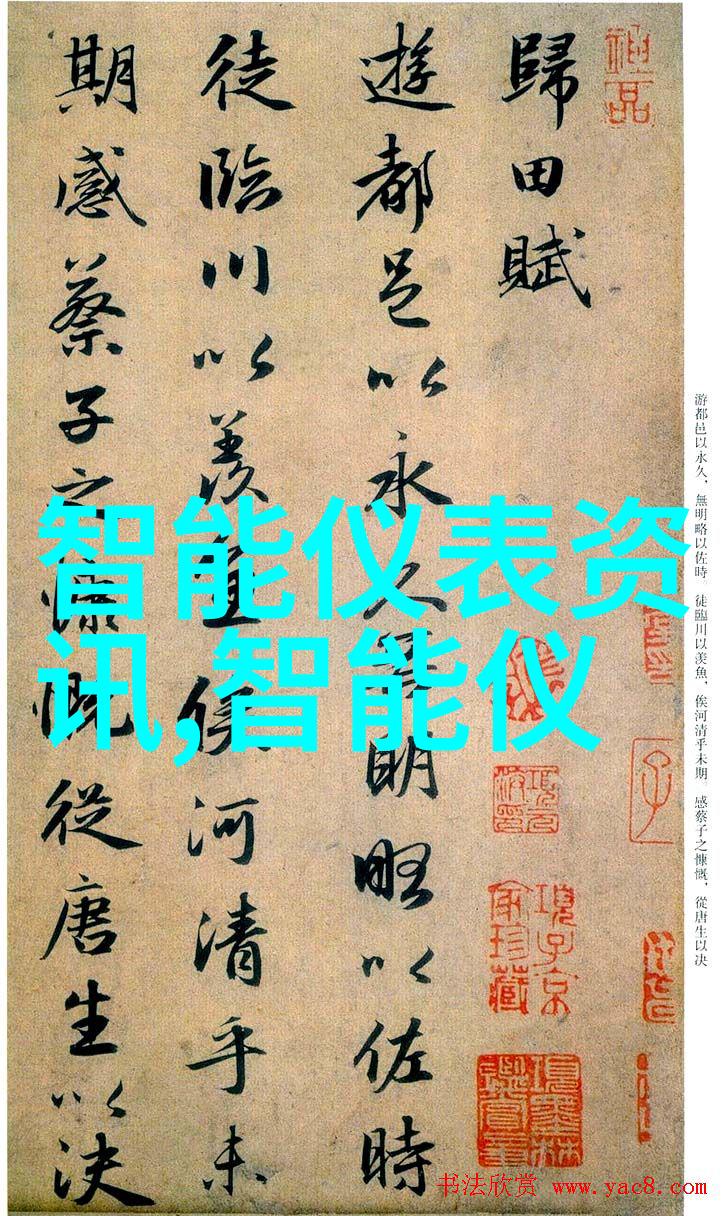 歸田賦
遊都邑以永久無明略以佐時
徒臨川以羨魚俟河清乎未
期感蔡子之慷慨從唐生以決
智能仪表资
讯,智能仪
游都邑以永久，無明略以佐時　徒臨川以羨魚，俟河清乎未期。感蔡子之慷慨，從唐生以决
神品
項子京
家珍藏
書法欣赏 www.yac8.com